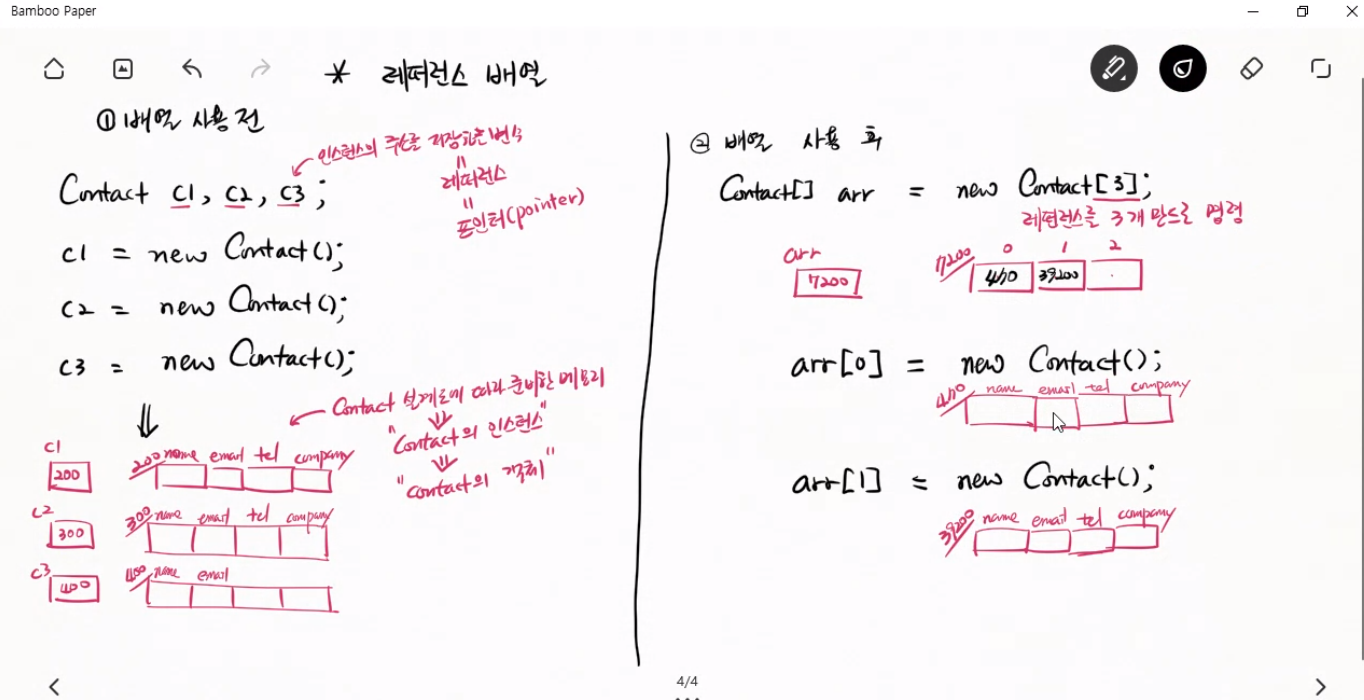 Bamboo Paper
* 레퍼런스 배열
① 배열 사용 전
인스턴스의 주소를 저장하는 변수
"
레퍼런스
"
포인터(pointer)
Contact c1, c2, c3 ;
c1 = new Contact();
c2 = new Contact();
c3 = new Contact();
⇓
Contact 설계도에 따라 준비한 메모리
⇓
"Contact의 인스턴스"
⇓
"contact의 객체"
c1
200
200 name email tel company
c2
300
300 name email tel company
c3
400
400 name email
② 배열 사용 후
Contact[] arr = new Contact[3];
레퍼런스를 3개 만드로 명령
arr
7200
7200 0 1 2
410 39200
arr[0] = new Contact();
410 name email tel company
arr[1] = new Contact();
39200 name email tel company
4/4